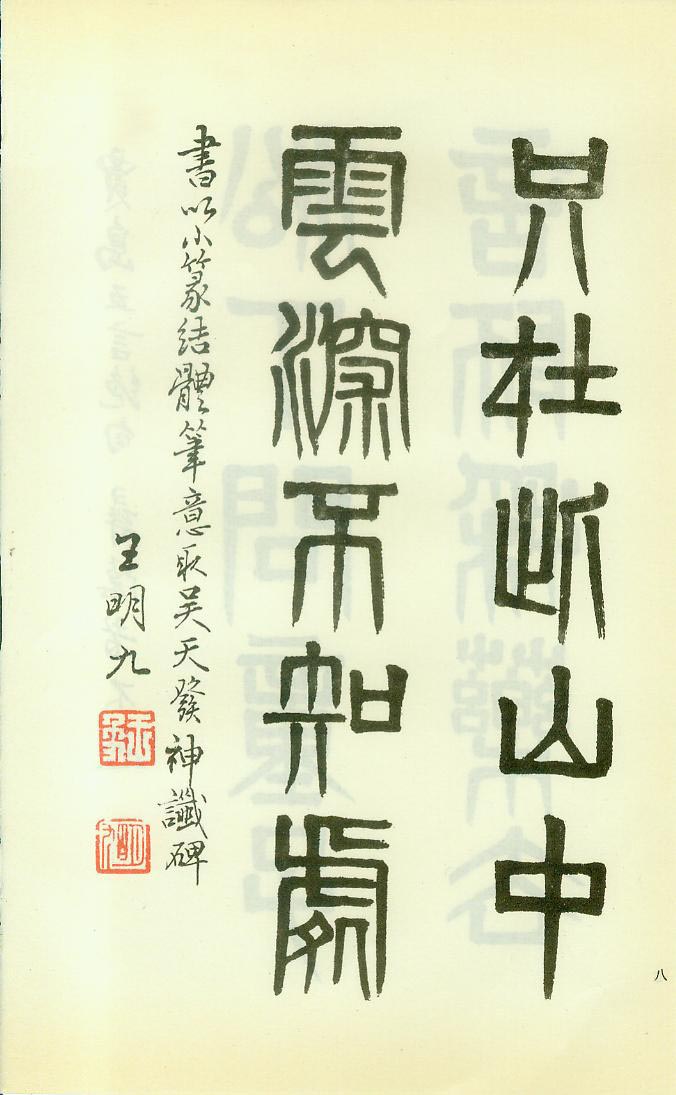 只在此山中
雲深不知處
書以小篆結體筆意取吳天發神讖碑
王明九
八